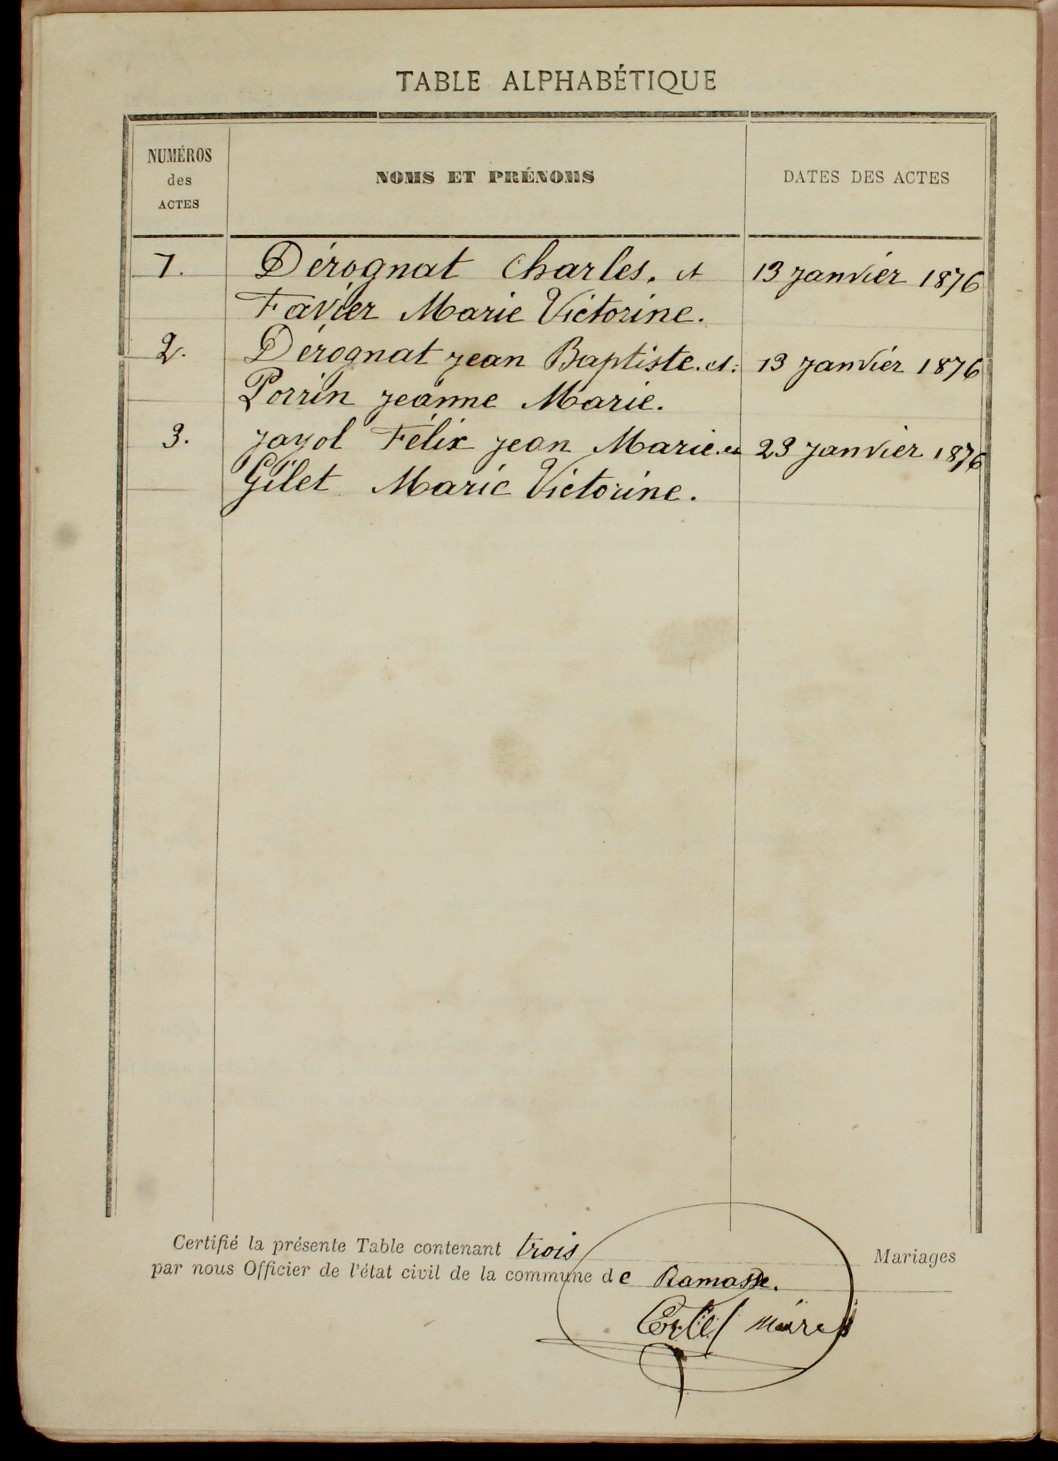 TABLE ALPHABÉTIQUE
NUMÉROS
des
ACTES
NOMS ET PRÉNOMS
DATES DES ACTES
1. Dérognat Charles. et 13 janvier 1876
Favier Marie Victorine.
2. Dérognat jean Baptiste. et: 13 janvier 1876
Perrin jeanne Marie.
3. jayol Félix jean Marie. et 23 janvier 1876
Gilet Marie Victorine.
Certifié la présente Table contenant trois Mariages
par nous Officier de l'état civil de la commune de Ramasse.
maire